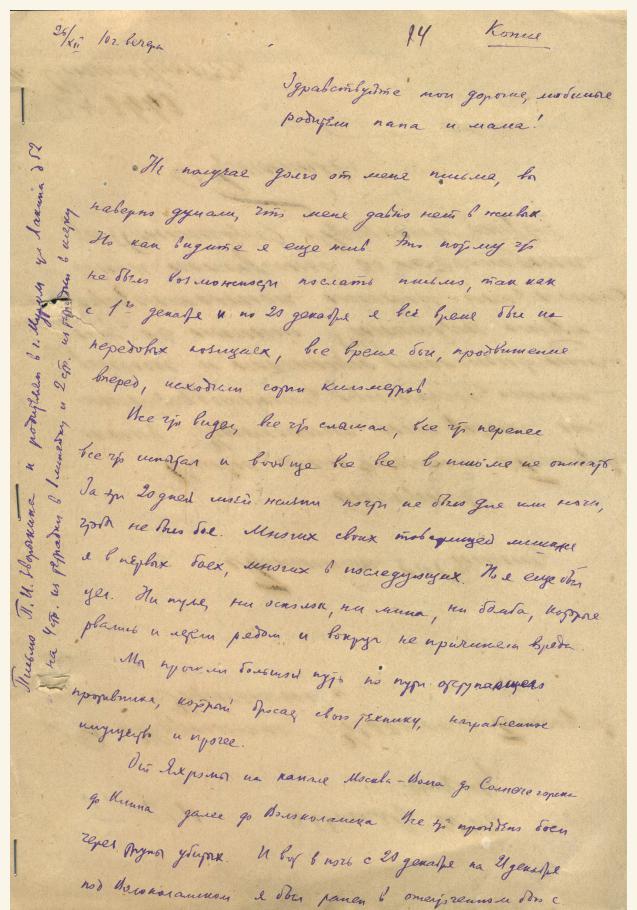 26/XII 10 г. вечера
14
Копия
Здравствуйте мои дорогие, любимые
родители папа и мама!
Не получае долго от меня письма, вы
наверно думали, что меня давно нет в живых
Но как видите я еще жив. Это потому что
не было возможности послать письмо, так как
с 1го декабря и по 20 декабря я всё время был на
передовых позициях, все время бои, продвижение
вперед, исходили сотни километров.
Все что видел, все что слышал, все что перенес
все что испытал и вообще все все в письме не описать.
За эти 20 дней моей жизни почти не было дня или ночи,
чтоб не было боя. Многих своих товарищей лишился
я в первых боях, многих в последующих. Но я еще был
цел. Ни пуля, ни осколок, ни мина, ни бомба, которые
рвались и летели рядом и вокруг не причинили вреда.
Мы прошли большой путь по пути отступающего
противника, который бросал свою технику, награбленное
имущество и прочее.
От Яхромы на канале Москва-Волга до Солнечногорска
до Клина далее до Волоколамска Все это пройдено боем
через трупы убитых. И вот в ночь с 20 декабря на 21 декабря
под Волоколамском я был ранен в ожесточенном бою с
Письмо П.И. к родителям в г. Муром ул Лакина д 52
на 4 стр. из тетрадки в 1 линейку и 2 стр. из тетрадки в клетку